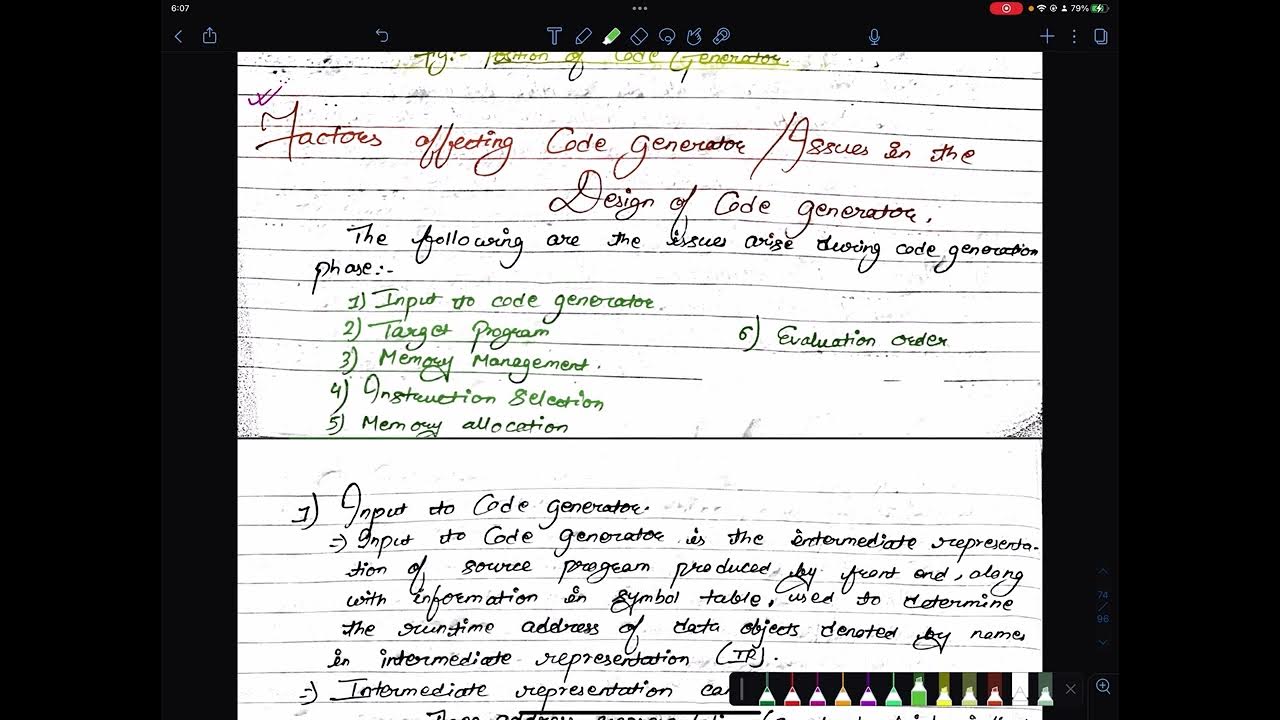 6:07
79%
Fig:- Position of Code Generator.
Factors affecting Code generator / Issues in the
Design of Code generator.
The following are the issues arise during code generation
phase:-
1) Input to code generator
2) Target program
3) Memory Management.
4) Instruction Selection
5) Memory allocation
6) Evaluation order
1) Input to Code generator.
=) Input to Code generator is the intermediate representa-
tion of source program produced by front end, along
with information in symbol table, used to determine
the runtime address of data objects denoted by names
in intermediate representation (IR).
=) Intermediate representation ca
74
/
96